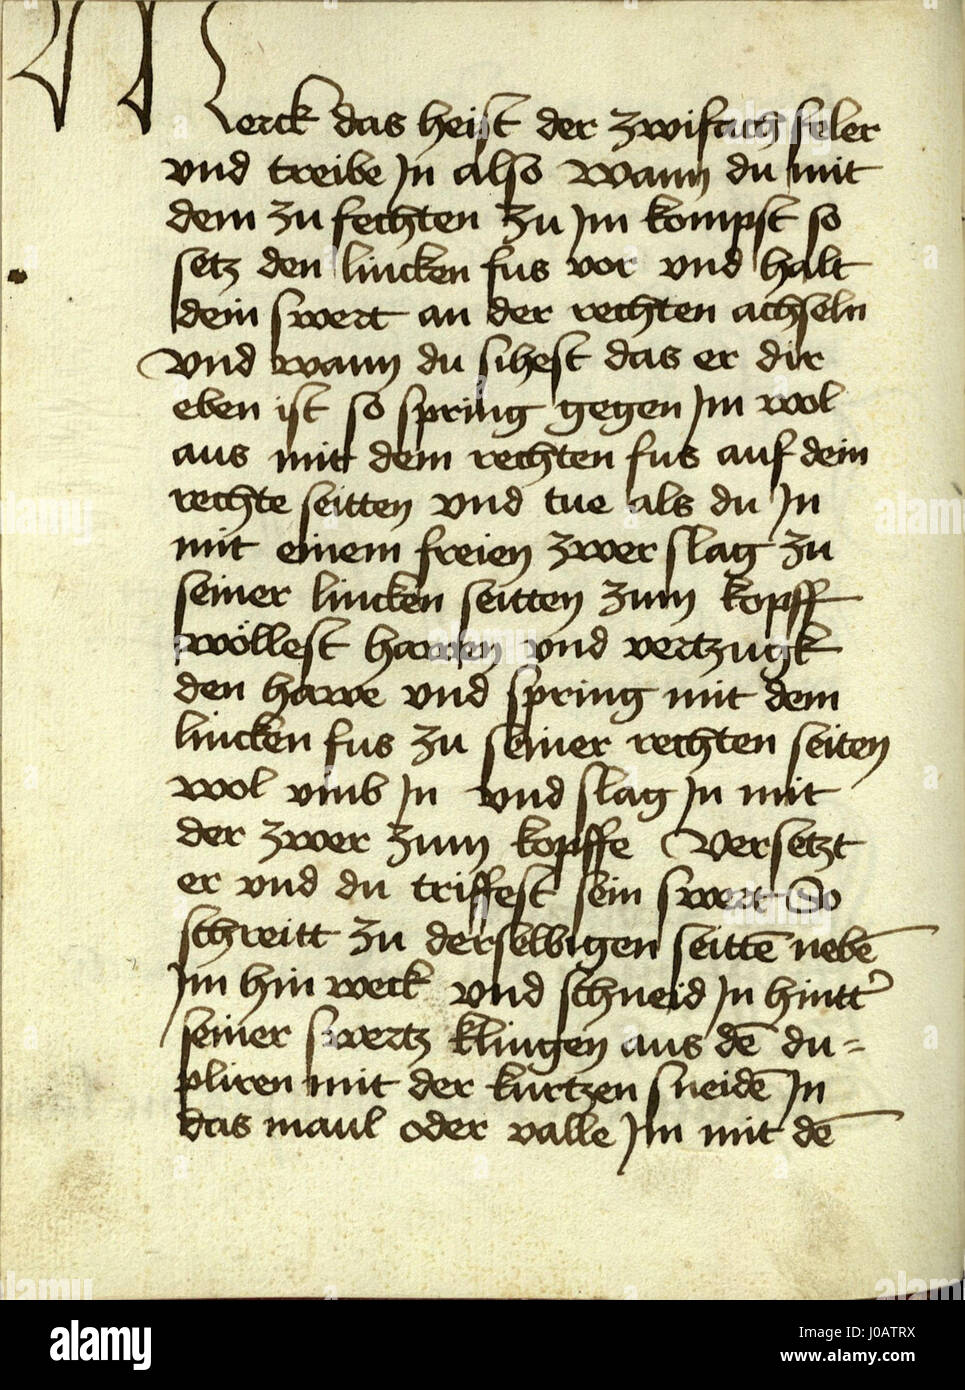 Merck das heist der zwifach feler
vnd treibe Jn also wann du mit
dem zu fechten zu Jm kompst so
setz den lincken fus vor vnd halt
dein swert an der rechten achseln
vnd wann du sihest das er dir
eben ist so spring gegen Jm wol
aus mit dem rechten fus auf dein
rechte seitten vnd tue als du Jn
mit einem freien zwer slag zu
seiner lincken seitten zum kopff
wöllest hawen vnd vertzugk
den hawe vnd spring mit dem
lincken fus zu seiner rechten seiten
wol vmb Jn vnd slag Jn mit
der zwer zum kopffe Versetzt
er vnd du triffest sein swert So
schreitt zu derselbigen seittē nebē
Jm hin weck vnd schneid Jn hintt'
seiner swertz klingen aus dē du=
pliren mit der kurtzen sneidē Jn
das maul oder valle Jm mit dē
alamy
Image ID: J0ATRX
www.alamy.com